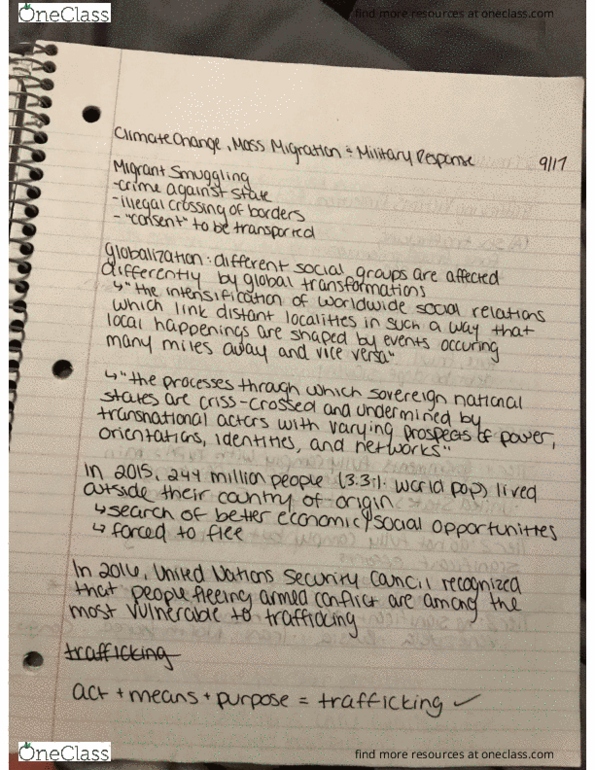 OneClass find more resources at oneclass.com
Climate Change, Mass Migration + Military Response 9/17
Migrant Smuggling
-crime against state
-illegal crossing of borders
- "consent" to be transported
globalization: different social groups are affected
differently by global transformations
↳ "the intensification of worldwide social relations
which link distant localities in such a way that
local happenings are shaped by events occuring
many miles away and vice versa"
↳ "the processes through which sovereign national
states are criss-crossed and undermined by
transnational actors with varying prospects of power,
orientations, identities, and networks"
In 2015, 244 million people (3.3%. world pop) lived
outside their country of origin
↳ search of better economic/social opportunities
↳ forced to flee
In 2016, United Nations Security Council recognized
that people fleeing armed conflict are among the
most vulnerable to trafficking
trafficking
act + means + purpose = trafficking ✓
OneClass find more resources at oneclass.com